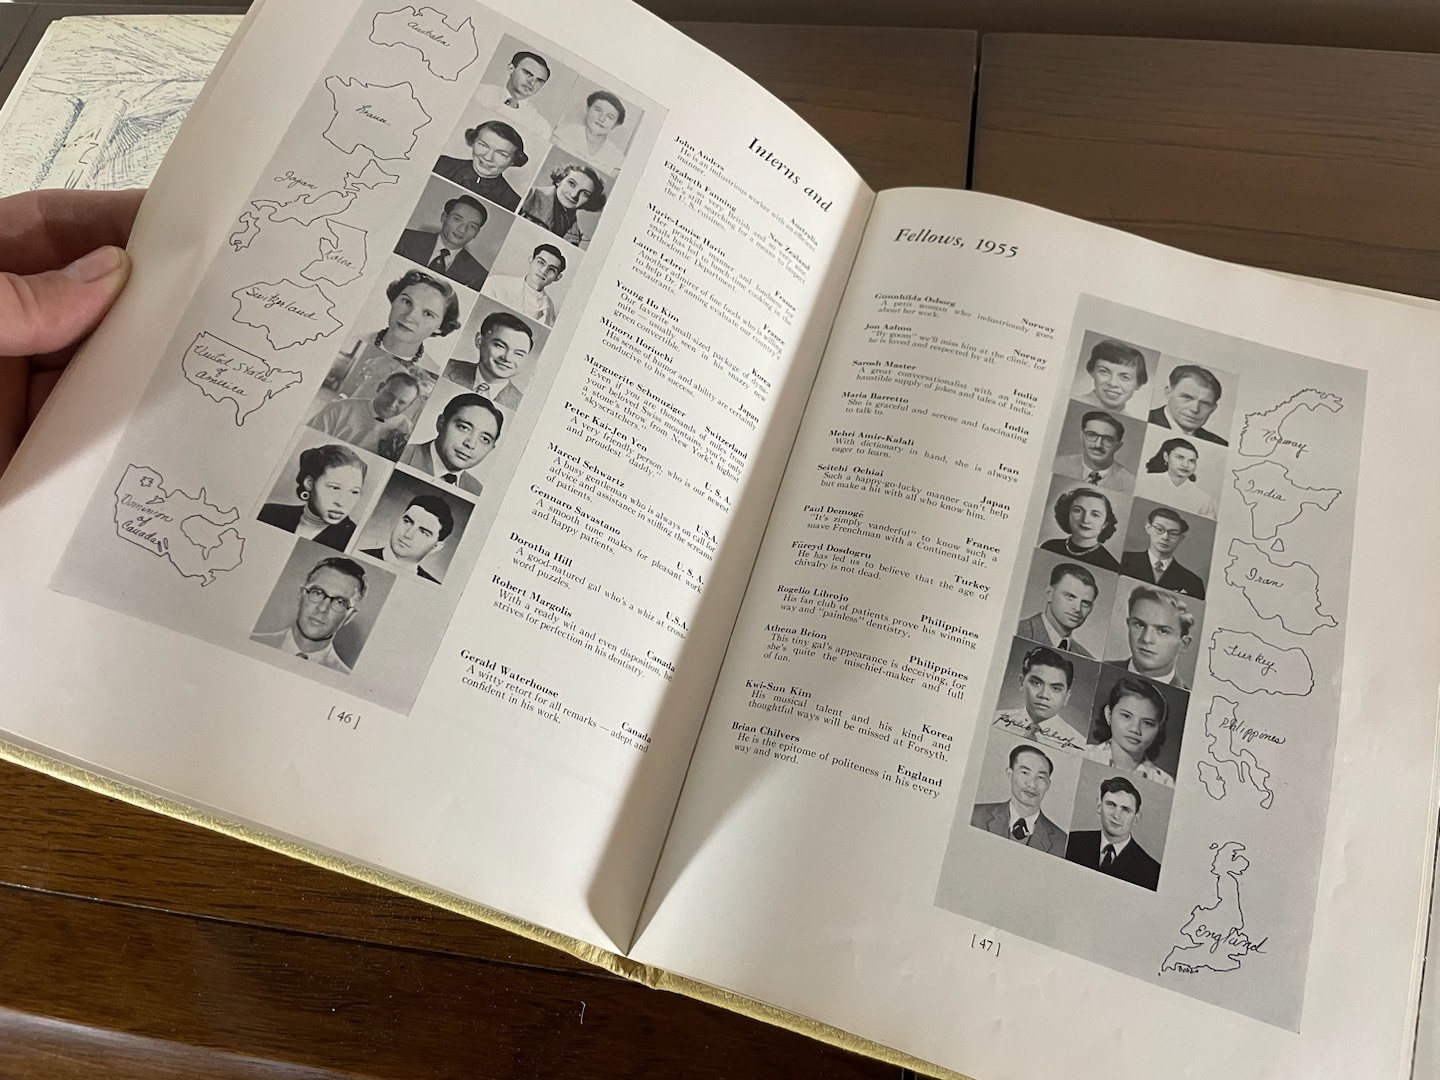 Australia
France
Japan
Korea
Switzerland
United States
of
America
Dominion
of
Canada
Interns and
John Anders Australia
He is an industrious worker with an efficient
manner.
Elizabeth Fanning New Zealand
She is so very British and so very nice.
She's still searching for a means to inspect
the U. S. cuisines.
Marie-Louise Harin France
Her prankish manner and fondness for
snails has led to lunch-time cooking in the
Orthodontic Department.
Laure Lebret France
Another admirer of fine foods who is willing
to help Dr. Fanning evaluate our country's
restaurants.
Young Hu Kim Korea
Our favorite small-sized package of dyna-
mite — usually seen in his snazzy new
green convertible.
Minoru Horiuchi Japan
His sense of humor and ability are certainly
conducive to his success.
Marguerite Schmuziger Switzerland
Even if you are thousands of miles from
your beloved Swiss mountains, you're only
a stone's throw from New York's highest
"skyscratchers."
Peter Kai-Jen Yen U. S. A.
A very friendly person, who is our newest
and proudest "daddy."
Marcel Schwartz U.S.A.
A busy gentleman who is always on call for
advice and assistance in stilling the screams
of patients.
Gennaro Savastano U. S. A.
A smooth tune makes for pleasant work
and happy patients.
Dorotha Hill U.S.A.
A good-natured gal who's a whiz at cross-
word puzzles.
Robert Margolis Canada
With a ready wit and even disposition, he
strives for perfection in his dentistry.
Gerald Waterhouse Canada
A witty retort for all remarks — adept and
confident in his work.
[ 46 ]
Fellows, 1955
Gunnhilda Osborg Norway
A petit woman who industriously goes
about her work.
Jon Aalmo Norway
"By goom" we'll miss him at the clinic, for
he is loved and respected by all.
Sarosh Master India
A great conversationalist with an inex-
haustible supply of jokes and tales of India.
Maria Barretto India
She is graceful and serene and fascinating
to talk to.
Mehri Amir-Kalali Iran
With dictionary in hand, she is always
eager to learn.
Seitchi Ochiai Japan
Such a happy-go-lucky manner can't help
but make a hit with all who know him.
Paul Demogé France
"It's zimply vanderful" to know such a
suave Frenchman with a Continental air.
Füreyd Dosdogru Turkey
He has led us to believe that the age of
chivalry is not dead.
Rogelio Librojo Philippines
His fan club of patients prove his winning
way and "painless" dentistry.
Athena Brion Philippines
This tiny gal's appearance is deceiving, for
she's quite the mischief-maker and full
of fun.
Kwi-Sun Kim Korea
His musical talent and his kind and
thoughtful ways will be missed at Forsyth.
Brian Chilvers England
He is the epitome of politeness in his every
way and word.
[ 47 ]
Norway
India
Iran
Turkey
Philippines
England